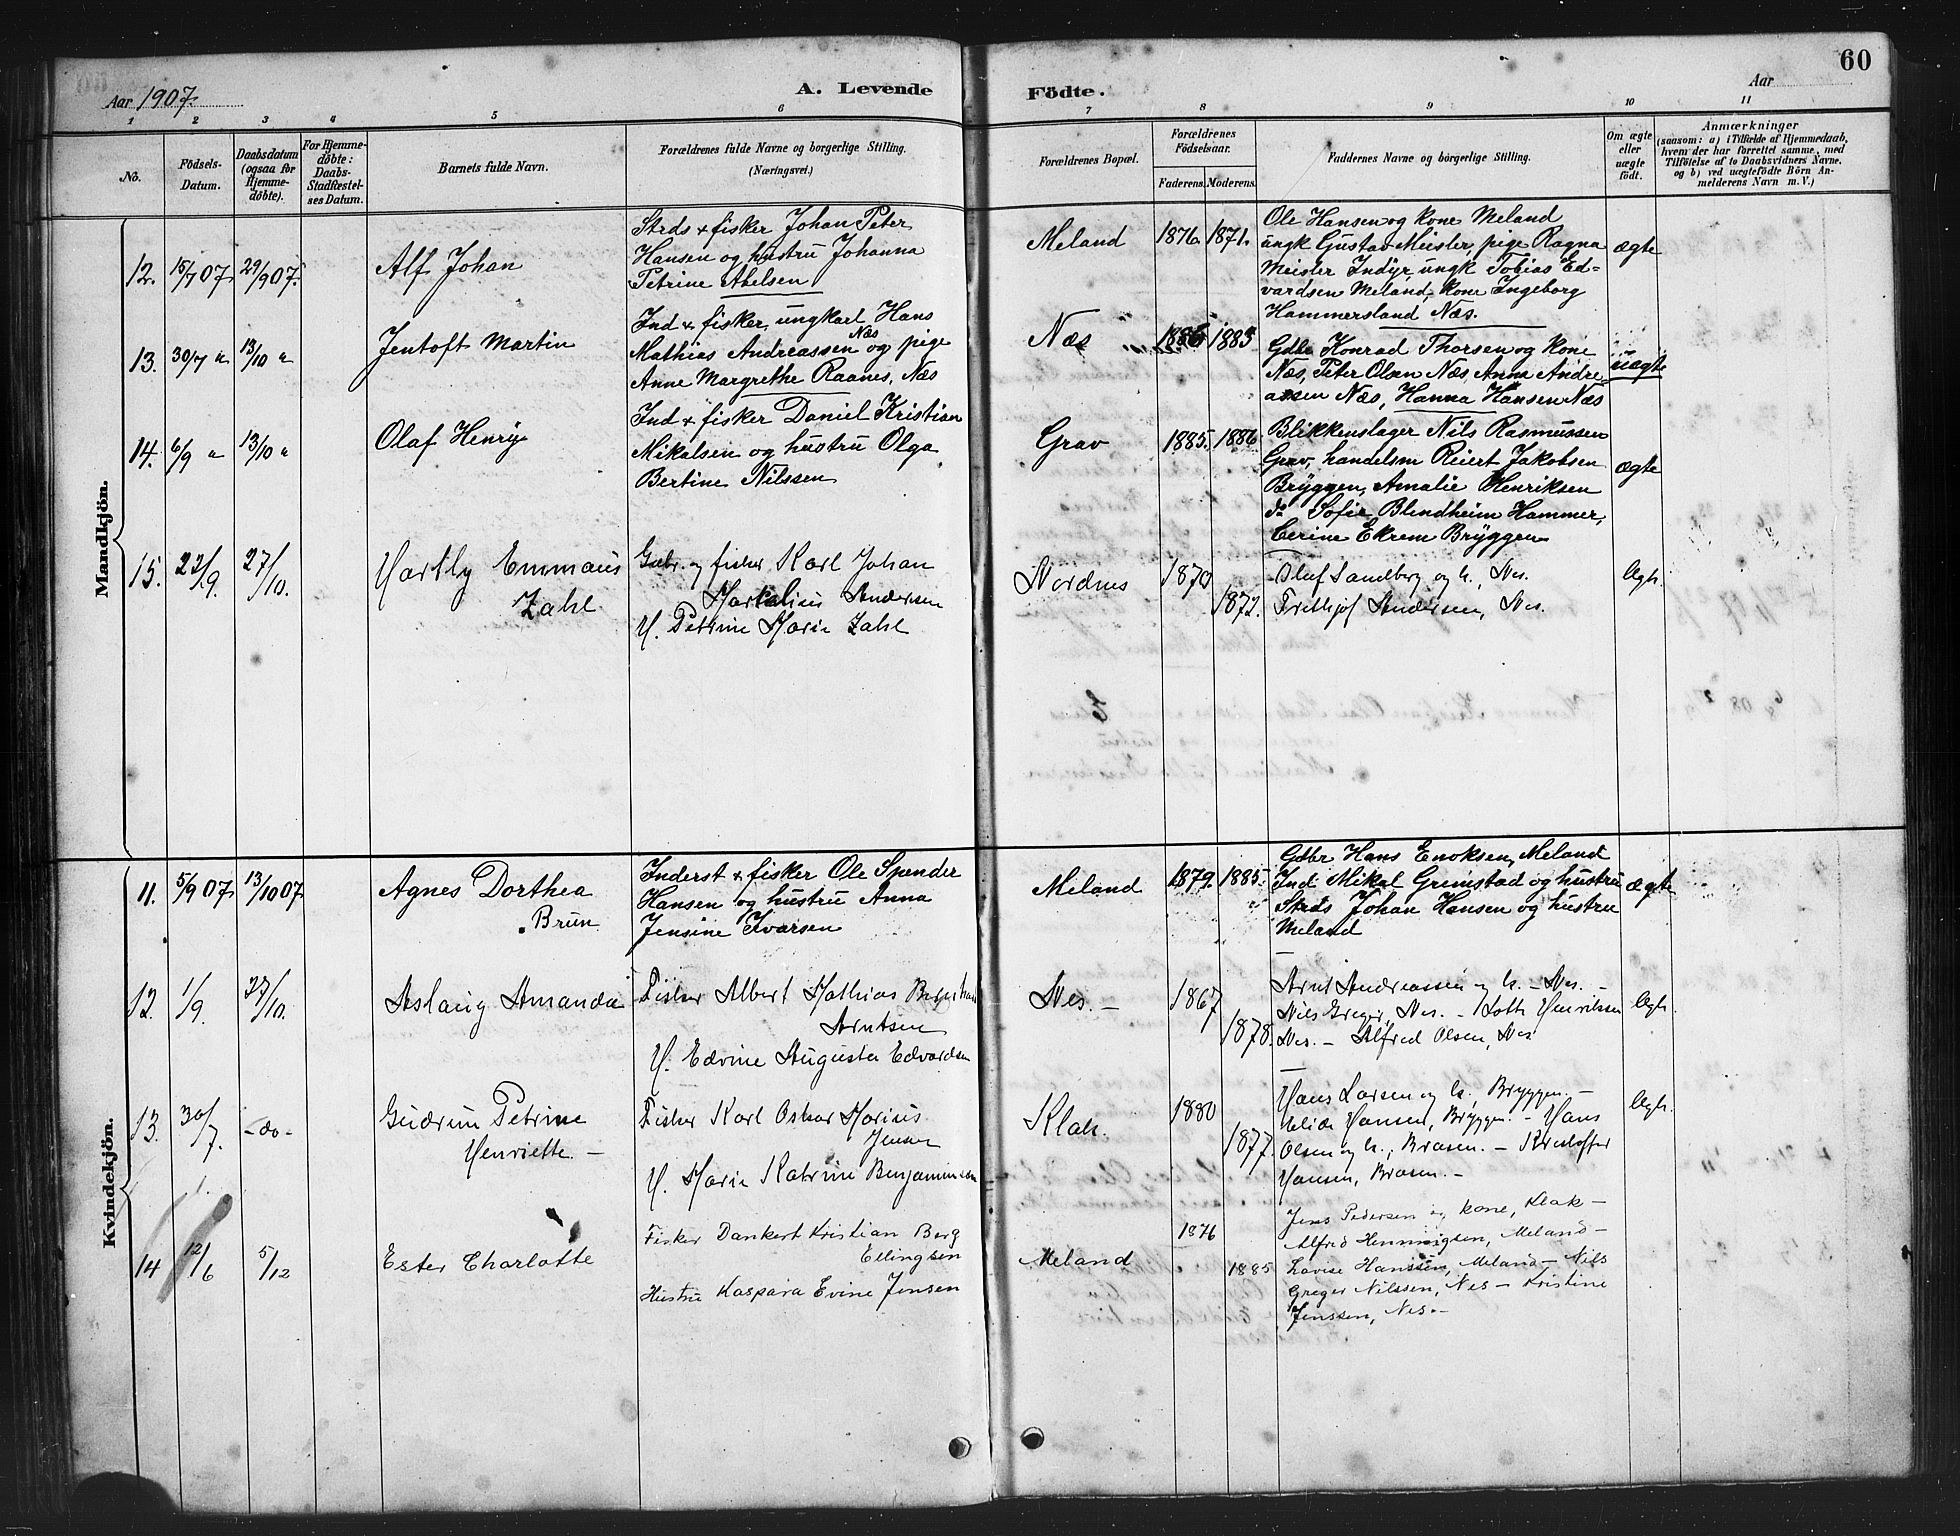 Aar 1907.
A. Levende
Födte.
Aar
60
1 2 3 4 5 6 7 8 9 10 11
No.
Födsels-
Datum.
Daabsdatum
(ogsaa for
Hjemme-
döbte).
For Hjemme-
döbte:
Daabs-
Stadfæstel-
ses Datum.
Barnets fulde Navn.
Forældrenes fulde Navne og borgerlige Stilling.
(Næringsvei.)
Forældrenes Bopæl.
Forældrenes
Födselsaar.
Faderens. Moderens.
Faddernes Navne og börgerlige Stilling.
Om ægte
eller
uægte
födt.
Anmærkninger
(saasom: a) i Tilfælde af Hjemmedaab,
hvem der har forrettet samme, med
Tilföielse af to Daabsvidners Navne,
og b) ved uægtefödte Börn An-
melderens Navn m. V.)
Mandkjön.
12. 15/7 07 29/9 07. Alf Johan
Strds & fisker Johan Peter
Hansen og hustru Johanna
Petrine Abelsen
Meland 1876. 1871.
Ole Hansen og kone Meland
ungk Gustav Meisler, pige Ragna
Meisler Indyr, ungk Tobias Ed=
vardsen Meland, kone Ingeborg
Hammersland Næs.
ægte
13. 30/7 " 13/10 " Jentoft Martin
Ind & fisker, ungkarl Hans
Mathias Andreassen Næs og pige
Anne Margrethe Raanes, Næs
Næs 1883
Gdbr Konrad Thorsen og kone
Næs, Peter Olsen Næs, Anna Andre
assen Næs, Hanna Hansen Næs
uægte
14. 6/9 " 13/10 " Olaf Henry
Ind & fisker Daniel Kristian
Mikalsen og hustru Olga
Bertine Nilssen
Grav 1885. 1886
Blikkenslager Nils Rasmussen
Grav, handelsm Reiert Jakobsen
Bryggen, Amalie Henriksen
do Sofie Blendheim Hammer,
Cerine Ekrem Bryggen
ægte
15. 23/9. 27/10. Hartly Emmaus
Zahl
Gbr. og fisker Karl Johan
Markelius Andersen
H. Petrine Marie Zahl
Nordnes 1870
1872.
Oluf Sandberg og h., Nes.
Frithjof Andersen, Nes.
Ægt.
Kvindekjön.
11. 5/9 07 13/10 07 Agnes Dorthea
Brun
Inderst & fisker Ole Spender
Hansen og hustru Anna
Jensine Ivarsen
Meland 1879. 1885.
Gdbr Hans Enoksen, Meland
Ind Mikal Grimstad og hustru
Strds Johan Hansen og hustru
Meland
ægte
12. 1/9. 27/10. Aslaug Amanda
Fisker Albert Mathias
Arntsen
H. Edvine Augusta Edvardsen
Nes. - 1867
1878.
Arnt Andreassen og h. - Nes. -
Nils Greger, Nes. - Lotte Henriksen
Nes. - Alfred Olsen, Nes
Ægt.
13. 30/7. - do - Gudrun Petrine
Henriette. -
Fisker Karl Oskar Marius
Jensen
H. Marie Katrine Benjaminsen
Klak. 1880
1877.
Hans Larsen og h., Bryggen. -
Hansen, Bryggen - Hans
Olsen og h., Brasen. - Kristoffer
Hansen, Brasen. -
Ægt.
14 12/6 5/12 Ester Charlotte
Fisker Dankert Kristian Berg
Ellingsen
Hustru Kaspara Evine Jensen
Meland 1876
1885
Jens Pedersen og kone, Klak -
Alfred Henningsen, Meland -
Lovise Hanssen, Meland - Nils
Greger Nilssen, Nes - Kristine
Jenssen, Nes. -